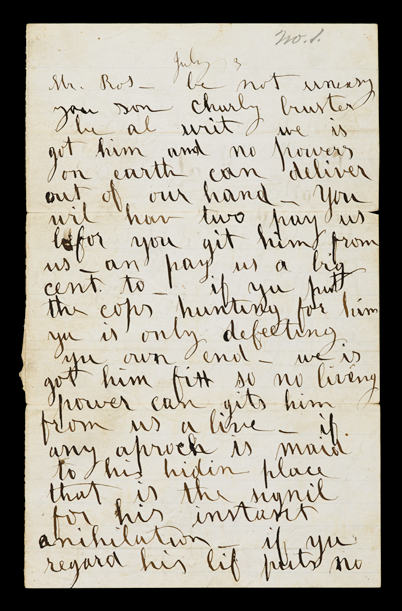 No. 1.
July 3
Mr. Ros – be not uneasy
you son charly bruster
be al writ we is
got him and no powers
on earth can deliver
out of our hand – You
wil hav two pay us
befor you git him from
us – an pay us a big
cent to – if you put
the cops hunting for him
yu is only defeeting
yu own end – we is
got him fitt so no living
power can gits him
from us a live – if
any aproch is maid
to his hidin place
that is the signil
for his instant
anihilation – if yu
regard his lif puts no